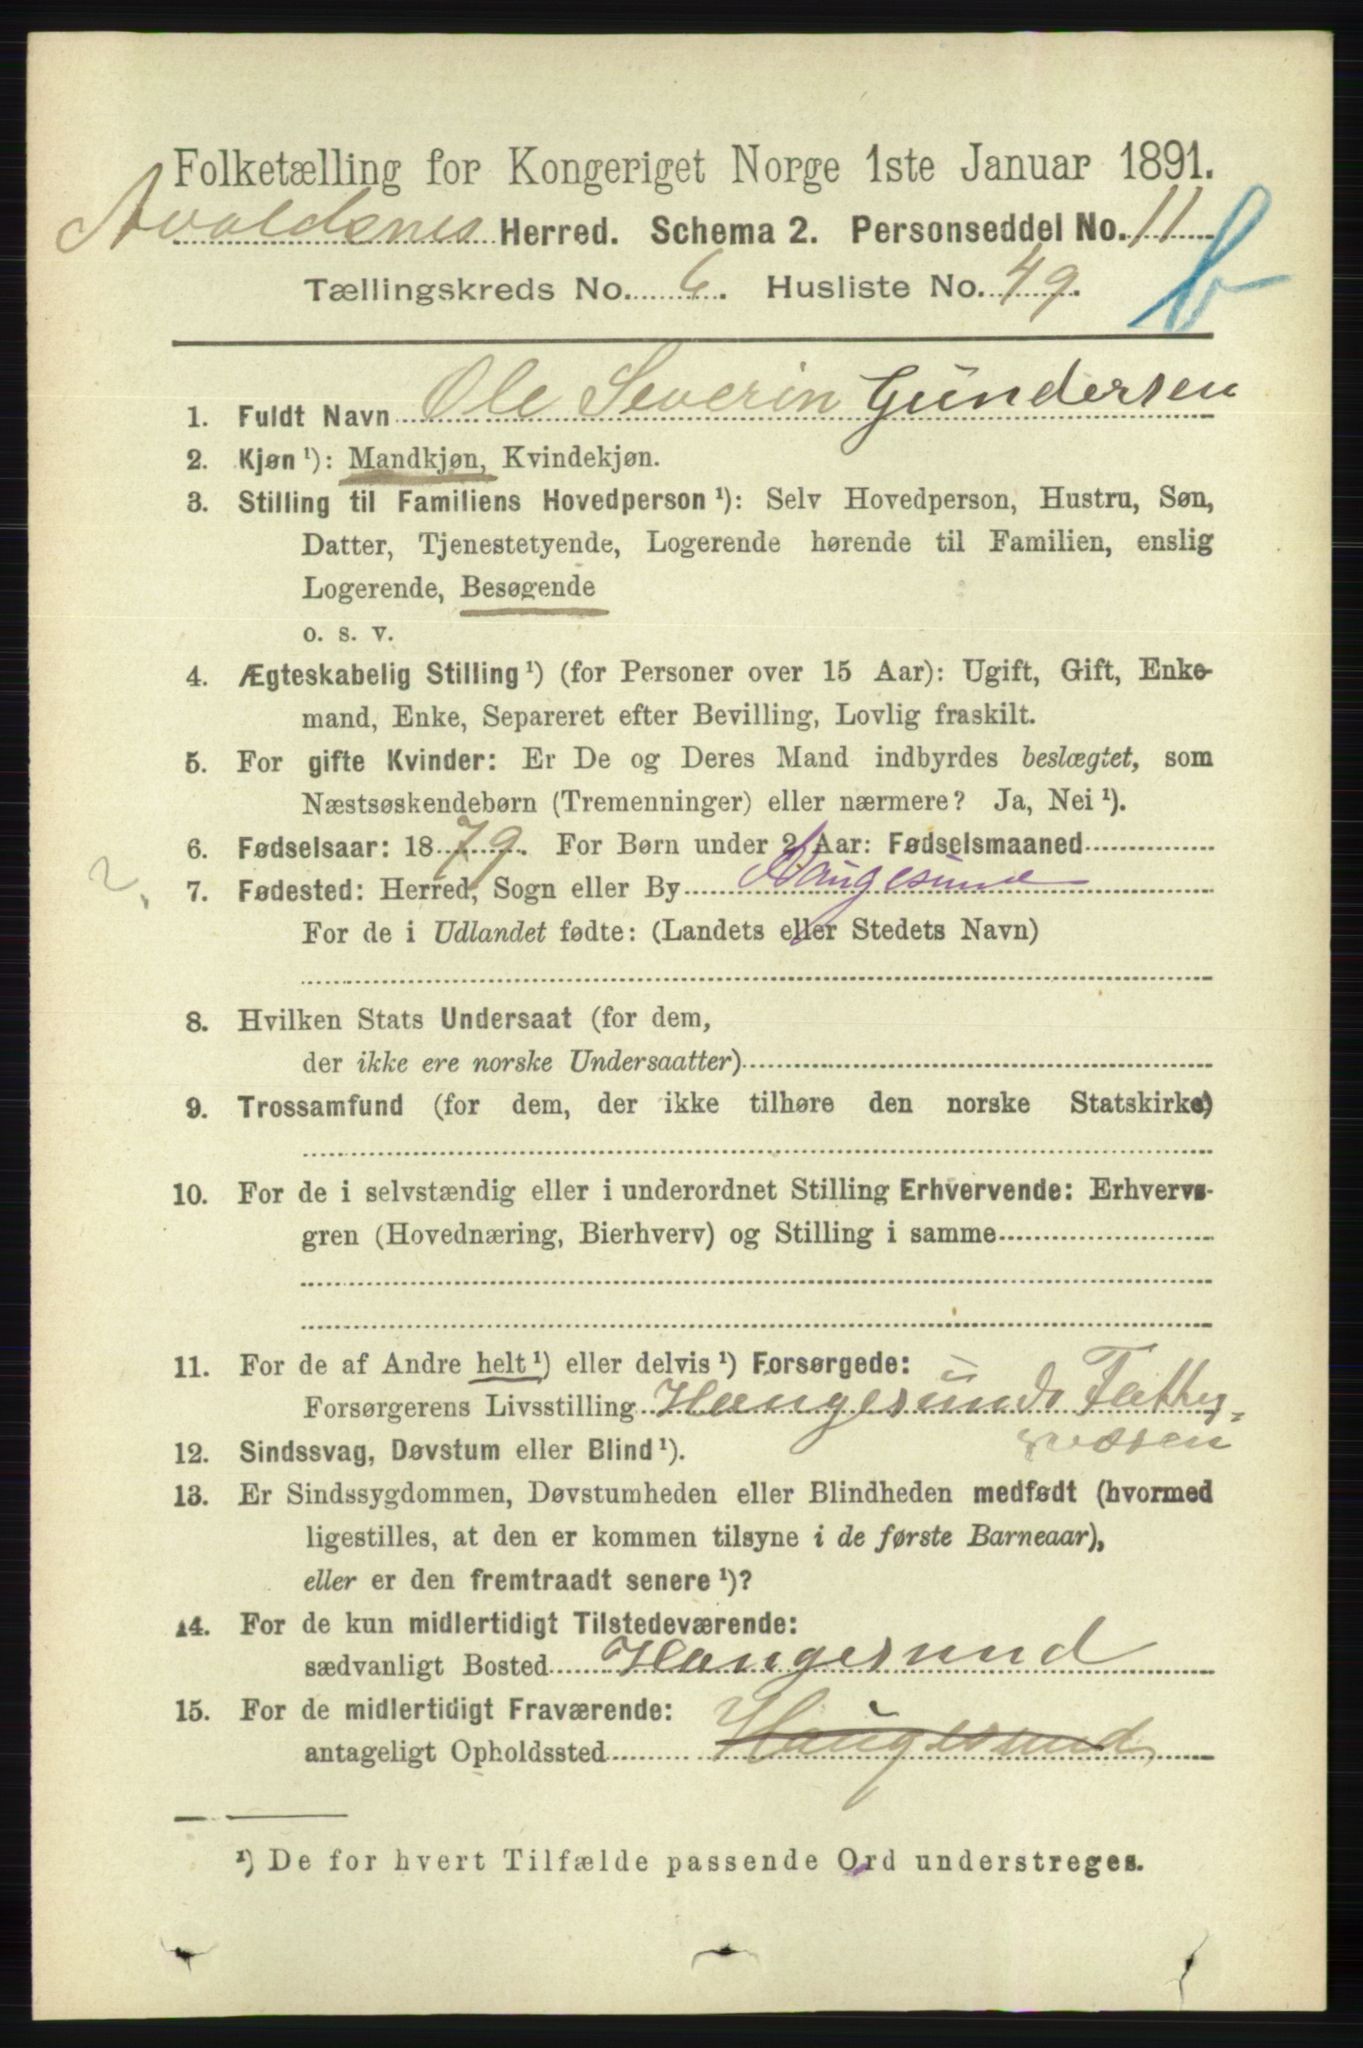 Folketælling for Kongeriget Norge 1ste Januar 1891.
Avaldsnes Herred. Schema 2. Personseddel No. 11
b
Tællingskreds No. 6. Husliste No. 49.
1. Fuldt Navn Ole Severin Gundersen
2. Kjøn ¹): Mandkjøn, Kvindekjøn.
3. Stilling til Familiens Hovedperson ¹): Selv Hovedperson, Hustru, Søn,
Datter, Tjenestetyende, Logerende hørende til Familien, enslig
Logerende, Besøgende
o. s. v.
4. Ægteskabelig Stilling ¹) (for Personer over 15 Aar): Ugift, Gift, Enke-
mand, Enke, Separeret efter Bevilling, Lovlig fraskilt.
5. For gifte Kvinder: Er De og Deres Mand indbyrdes beslægtet, som
Næstsøskendebørn (Tremenninger) eller nærmere? Ja, Nei ¹).
6. Fødselsaar: 1879. For Børn under 2 Aar: Fødselsmaaned
2.
7. Fødested: Herred, Sogn eller By Haugesund
For de i Udlandet fødte: (Landets eller Stedets Navn)
8. Hvilken Stats Undersaat (for dem,
der ikke ere norske Undersaatter)
9. Trossamfund (for dem, der ikke tilhøre den norske Statskirke)
10. For de i selvstændig eller i underordnet Stilling Erhvervende: Erhvervs-
gren (Hovednæring, Bierhverv) og Stilling i samme
11. For de af Andre helt ¹) eller delvis ¹) Forsørgede:
Forsørgerens Livsstilling Haugesunds Fattig-
væsen
12. Sindssvag, Døvstum eller Blind ¹).
13. Er Sindssygdommen, Døvstumheden eller Blindheden medfødt (hvormed
ligestilles, at den er kommen tilsyne i de første Barneaar),
eller er den fremtraadt senere ¹)?
14. For de kun midlertidigt Tilstedeværende:
sædvanligt Bosted Haugesund
15. For de midlertidigt Fraværende:
antageligt Opholdssted Haugesund
¹) De for hvert Tilfælde passende Ord understreges.